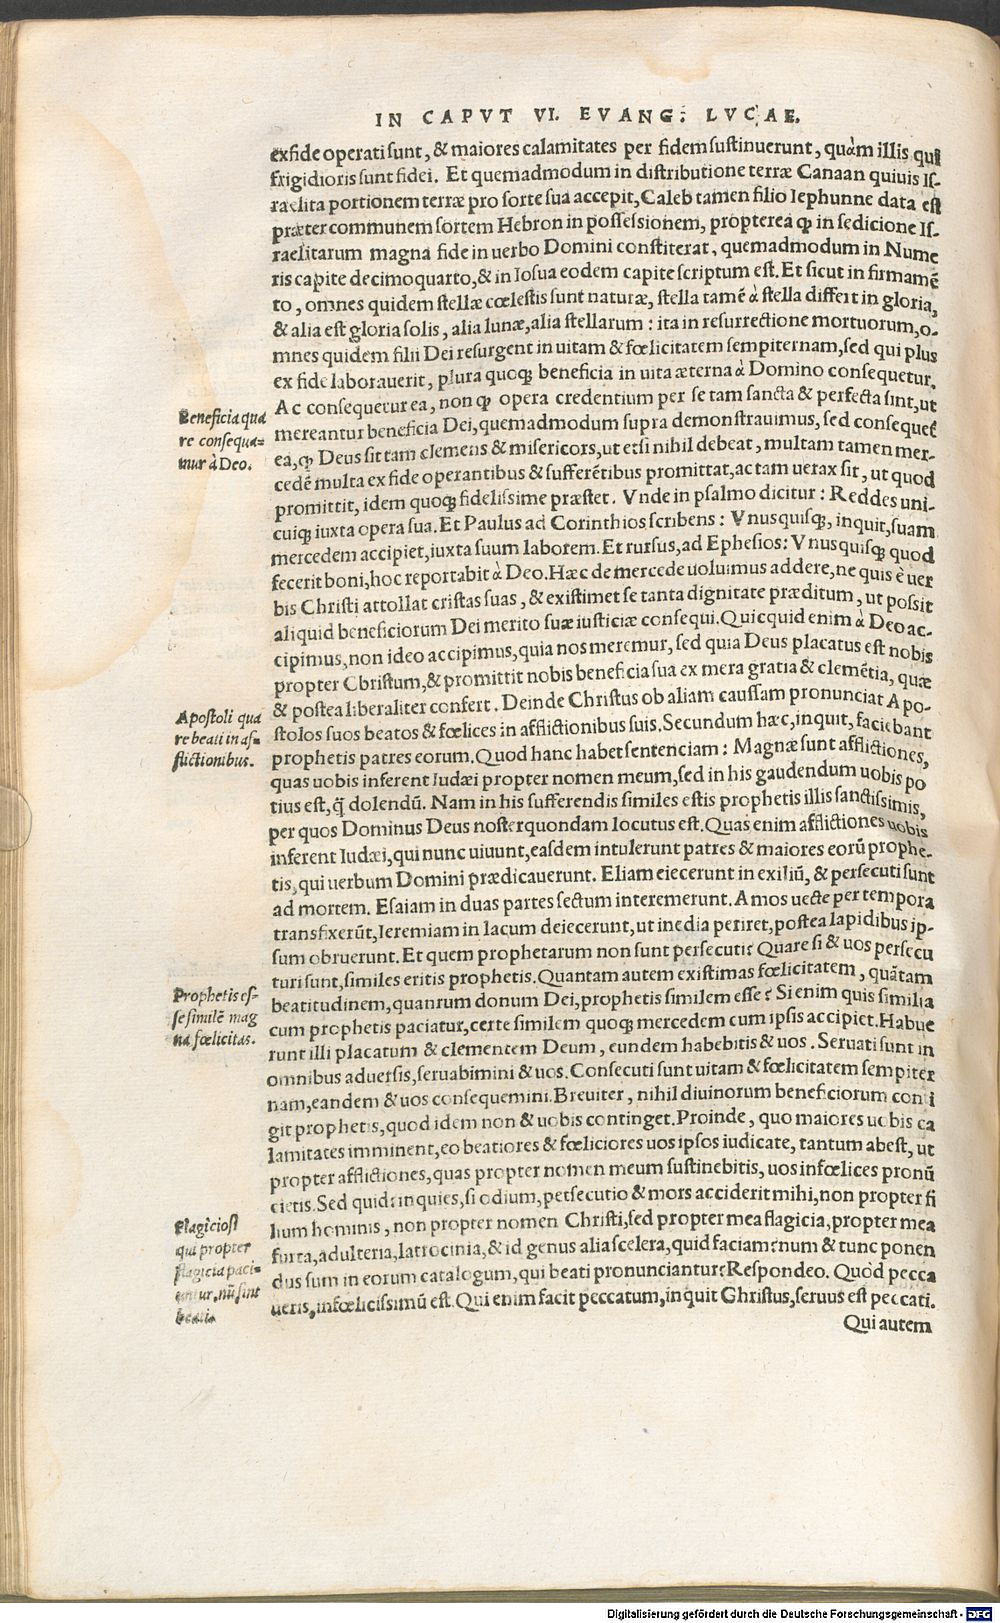 IN CAPVT VI. EVANG: LVCAE.
ex fide operati sunt, & maiores calamitates per fidem sustinuerunt, quàm illis qui
frigidioris sunt fidei. Et quemadmodum in distributione terræ Canaan quiuis Is-
raelita portionem terræ pro sorte sua accepit, Caleb tamen filio Iephunne data est
præter communem sortem Hebron in possessionem, propterea ꝙ in sedicione Is-
raelitarum magna fide in uerbo Domini constiterat, quemadmodum in Nume
ris capite decimoquarto, & in Iosua eodem capite scriptum est. Et sicut in firmamē
to, omnes quidem stellæ cœlestis sunt naturæ, stella tamē à stella differt in gloria,
& alia est gloria solis, alia lunæ, alia stellarum: ita in resurrectione mortuorum, o-
mnes quidem filii Dei resurgent in uitam & fœlicitatem sempiternam, sed qui plus
ex fide laborauerit, plura quoqꝫ beneficia in uita æterna à Domino consequetur.
Ac consequetur ea, non ꝙ opera credentium per se tam sancta & perfecta sint, ut
mereantur beneficia Dei, quemadmodum supra demonstrauimus, sed consequet̃
ea, ꝙ Deus sit tam clemens & misericors, ut etsi nihil debeat, multam tamen mer-
cedē multa ex fide operantibus & sufferētibus promittat, ac tam uerax sit, ut quod
promittit, idem quoqꝫ fidelissime præstet. Vnde in psalmo dicitur: Reddes uni-
cuiqꝫ iuxta opera sua. Et Paulus ad Corinthios scribens: Vnusquisqꝫ, inquit, suam
mercedem accipiet, iuxta suum laborem. Et rursus, ad Ephesios: Vnusquisqꝫ quod
fecerit boni, hoc reportabit à Deo. Hæc de mercede uoluimus addere, ne quis è uer
bis Christi attollat cristas suas, & existimet se tanta dignitate præditum, ut possit
aliquid beneficiorum Dei merito suæ iusticiæ consequi. Quicquid enim à Deo ac-
cipimus, non ideo accipimus, quia nos meremur, sed quia Deus placatus est nobis
propter Christum, & promittit nobis beneficia sua ex mera gratia & clemētia, quæ
& postea liberaliter confert. Deinde Christus ob aliam caussam pronunciat Apo-
stolos suos beatos & fœlices in afflictionibus suis. Secundum hæc, inquit, faciebant
prophetis patres eorum. Quod hanc habet sentenciam: Magnæ sunt afflictiones,
quas uobis inferent Iudæi propter nomen meum, sed in his gaudendum uobis po
tius est, q̃ dolendū. Nam in his sufferendis similes estis prophetis illis sanctissimis,
per quos Dominus Deus noster quondam locutus est. Quas enim afflictiones uobis
inferent Iudæi, qui nunc uiuunt, easdem intulerunt patres & maiores eorū prophe-
tis, qui uerbum Domini prædicauerunt. Eliam eiecerunt in exiliū, & persecuti sunt
ad mortem. Esaiam in duas partes sectum interemerunt. Amos uecte per tempora
transfixerūt, Ieremiam in lacum deiecerunt, ut inedia periret, postea lapidibus ip-
sum obruerunt. Et quem prophetarum non sunt persecuti? Quare si & uos persecu
turi sunt, similes eritis prophetis. Quantam autem existimas fœlicitatem, quātam
beatitudinem, quantum donum Dei, prophetis similem esse? Si enim quis similia
cum prophetis paciatur, certe similem quoqꝫ mercedem cum ipsis accipiet. Habue
runt illi placatum & clementem Deum, eundem habebitis & uos. Seruati sunt in
omnibus aduersis, seruabimini & uos. Consecuti sunt uitam & fœlicitatem sempiter
nam, eandem & uos consequemini. Breuiter, nihil diuinorum beneficiorum conti
git prophetis, quod idem non & uobis continget. Proinde, quo maiores uobis ca
lamitates imminent, eo beatiores & fœliciores uos ipsos iudicate, tantum abest, ut
propter afflictiones, quas propter nomen meum sustinebitis, uos infœlices pronū
cietis. Sed quid: inquies, si odium, persecutio & mors acciderit mihi, non propter fi
lium hominis, non propter nomen Christi, sed propter mea flagicia, propter mea
furta, adulteria, latrocinia, & id genus alia scelera, quid faciam? num & tunc ponen
dus sum in eorum catalogum, qui beati pronunciantur? Respondeo. Quòd pecca
ueris, infœlicissimū est. Qui enim facit peccatum, inquit Christus, seruus est peccati.
Qui autem
Beneficia qua
re consequa-
mur à Deo.
Apostoli qua
re beati in af-
flictionibus.
Prophetis es-
se similē mag
na fœlicitas.
Flagiciosi
qui propter
flagicia paci-
untur, nū sint
beati.
Digitalisierung gefördert durch die Deutsche Forschungsgemeinschaft - DFG